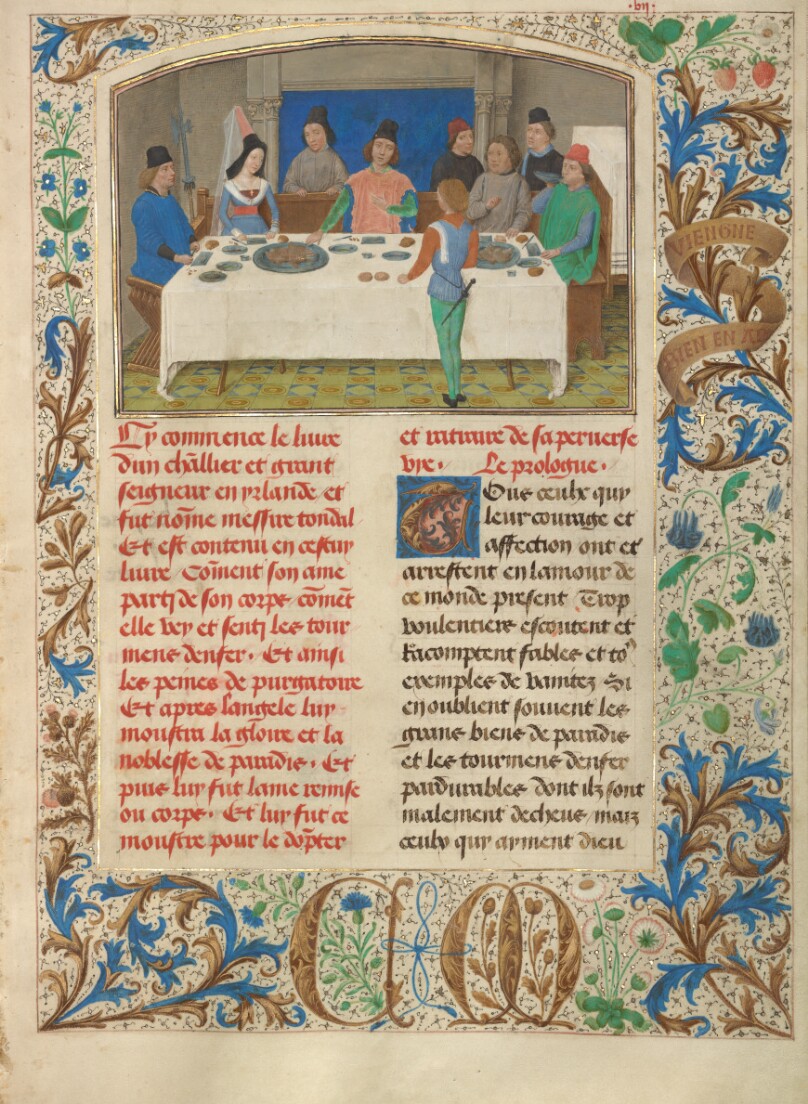 ·vii·
VIENGNE
BIEN EN A
Cy commence le liure
dun chlĩer et grant
seigneur en yrlande et
fut nõme messire tondal
Et est contenu en cestuy
liure Cõment son ame
parti de son corps cõmẽt
elle vey et senti les tour
mens denfer · Et ainsi
les peines de purgatoire
Et apres langele luy
moustra la gloire et la
noblesse de paradis · Et
puis luy fut lame remise
ou corps · Et luy fut ce
moustre pour le dõpter
et retraire de sa peruerse
vye · Le prologue ·
Tous ceulx quy
leur courage et
affection ont et
arrestent en lamour de
ce monde present Trop
voulentiers escoutent et
Racomptent fables et to⁹
exemples de vanitez Si
en oublient souuent les
grans biens de paradis
et les tourmens denfer
pardurables dont ilz sont
malement deceus mais
ceulx quy ayment dieu
C M